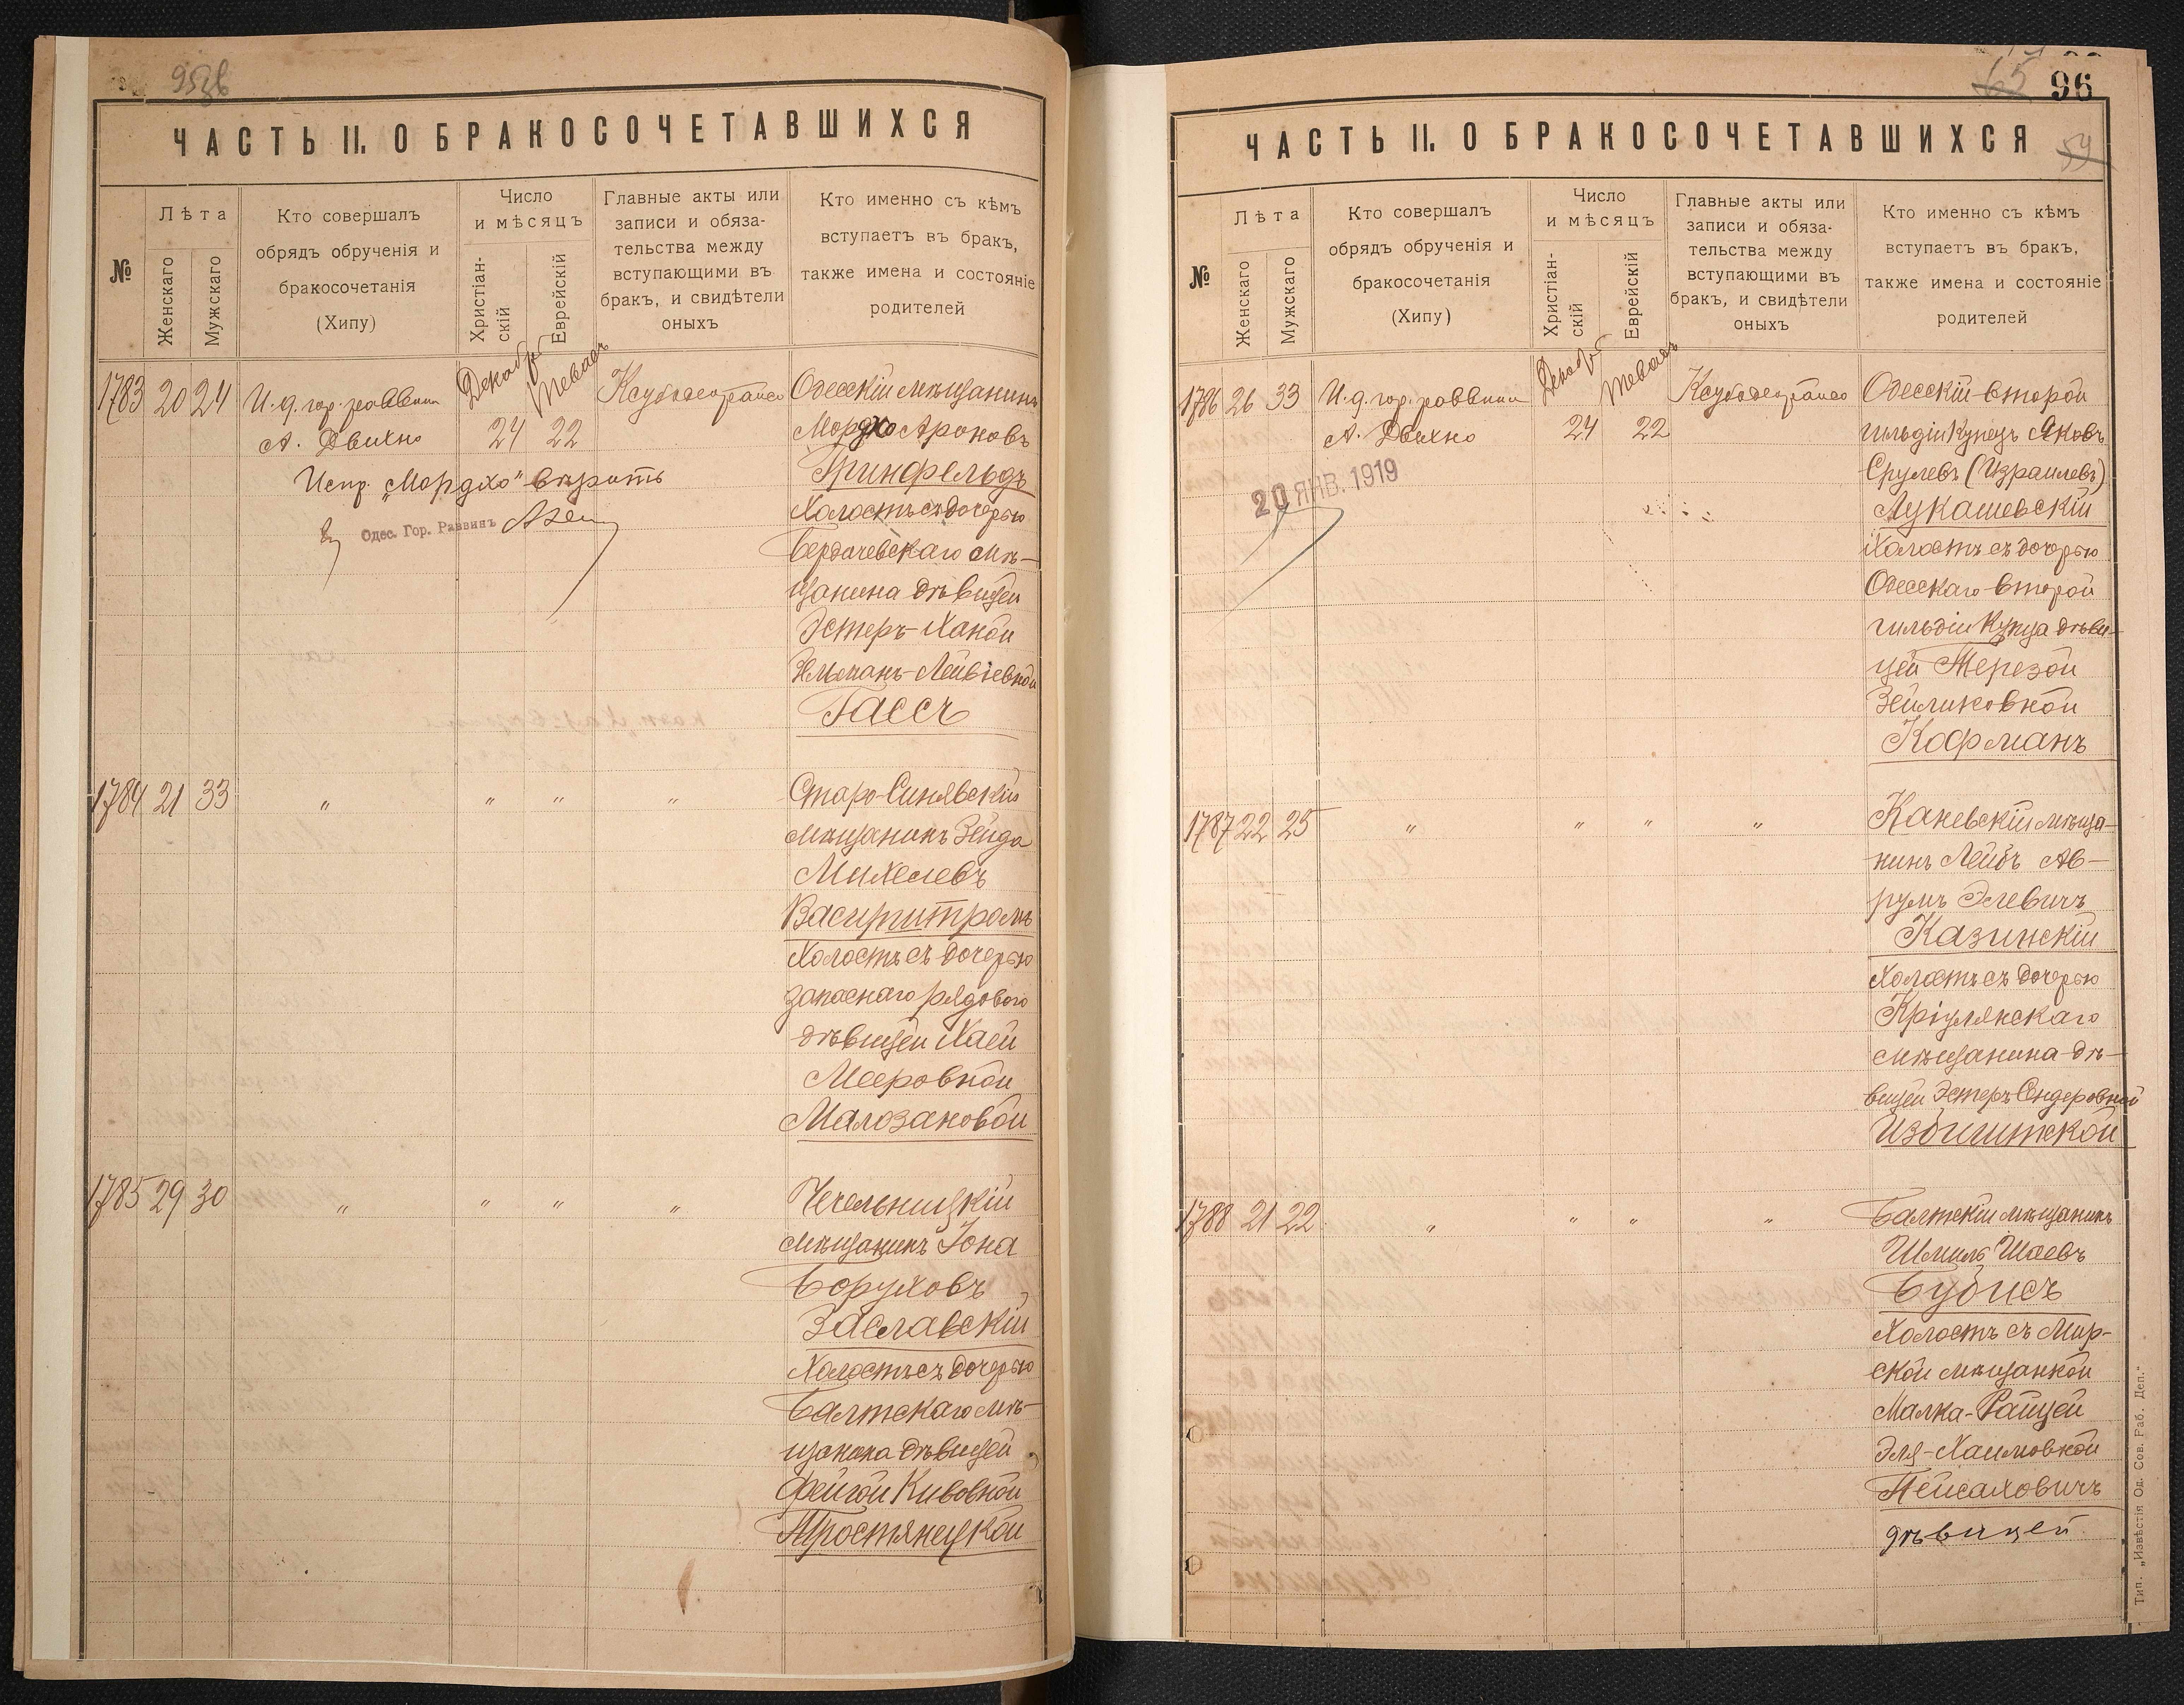 95зв
ЧАСТЬ II. О БРАКОСОЧЕТАВШИХСЯ
№
Лѣта
Женскаго
Мужскаго
Кто совершалъ
обрядъ обрученія и
бракосочетанія
(Хипу)
Число
и мѣсяцъ
Христіан-
скій
Еврейскій
Главные акты или
записи и обяза-
тельства между
вступающими въ
бракъ, и свидѣтели
оныхъ
Кто именно съ кѣмъ
вступаетъ въ бракъ,
также имена и состояніе
родителей
1783 20 24
И.д. гор. раввина
А. Двихно
Декабрь
24
Тевасъ
22
Испр. „Мордхо" вѣрить
Одес. Гор. Раввинъ
Одесскій мѣщанинъ
Мордхо Ароновъ
Гринфельдъ
Холостъ съ дочерью
Бердичевскаго мѣ-
щанина дѣвицей
Эстеръ-Ханой
Зельманъ-Лейвіевной
Гассъ
1784 21 33 " " " "
Старо-Синявскій
мѣщанинъ Зейда
Михелевъ
Васирштромъ
Холостъ съ дочерью
запаснаго рядового
дѣвицей Хаей
Мееровной
Малозановой
1785 29 30 " " " "
Чечельницкій
мѣщанинъ Іона
Боруховъ
Заславскій
Холостъ съ дочерью
Балтскаго мѣ-
щанина дѣвицей
Фейгой Кивовной
Тростянецкой
65
96
59
ЧАСТЬ II. О БРАКОСОЧЕТАВШИХСЯ
№
Лѣта
Женскаго
Мужскаго
Кто совершалъ
обрядъ обрученія и
бракосочетанія
(Хипу)
Число
и мѣсяцъ
Христіан-
скій
Еврейскій
Главные акты или
записи и обяза-
тельства между
вступающими въ
бракъ, и свидѣтели
оныхъ
Кто именно съ кѣмъ
вступаетъ въ бракъ,
также имена и состояніе
родителей
1786 26 33
И.д. гор. раввина
А. Двихно
Декабрь
24
Тевасъ
22
20 ЯНВ. 1919
Одесскій второй
гильдіи Купецъ Яковъ
Срулевъ (Израилевъ)
Лукашевскій
Холостъ съ дочерью
Одесскаго второй
гильдіи Купца дѣви-
цей Терезой
Зейликовной
Кофманъ
1787 22 25 " " " "
Каневскій мѣща-
нинъ Лейбъ Ав-
румъ Элевичъ
Казинскій
Холостъ съ дочерью
Кріулянскаго
мѣщанина дѣ-
вицей Эстеръ Сендеровной
Избиштской
1788 21 22 " " " "
Балтскій мѣщанинъ
Шмиль Шаевъ
Бубисъ
Холостъ съ Мир-
ской мѣщанкой
Малка-Райцей
Эля-Хаимовной
Пейсаховичъ
дѣвицей
Тип. „Извѣстія Од. Сов. Раб. Деп."